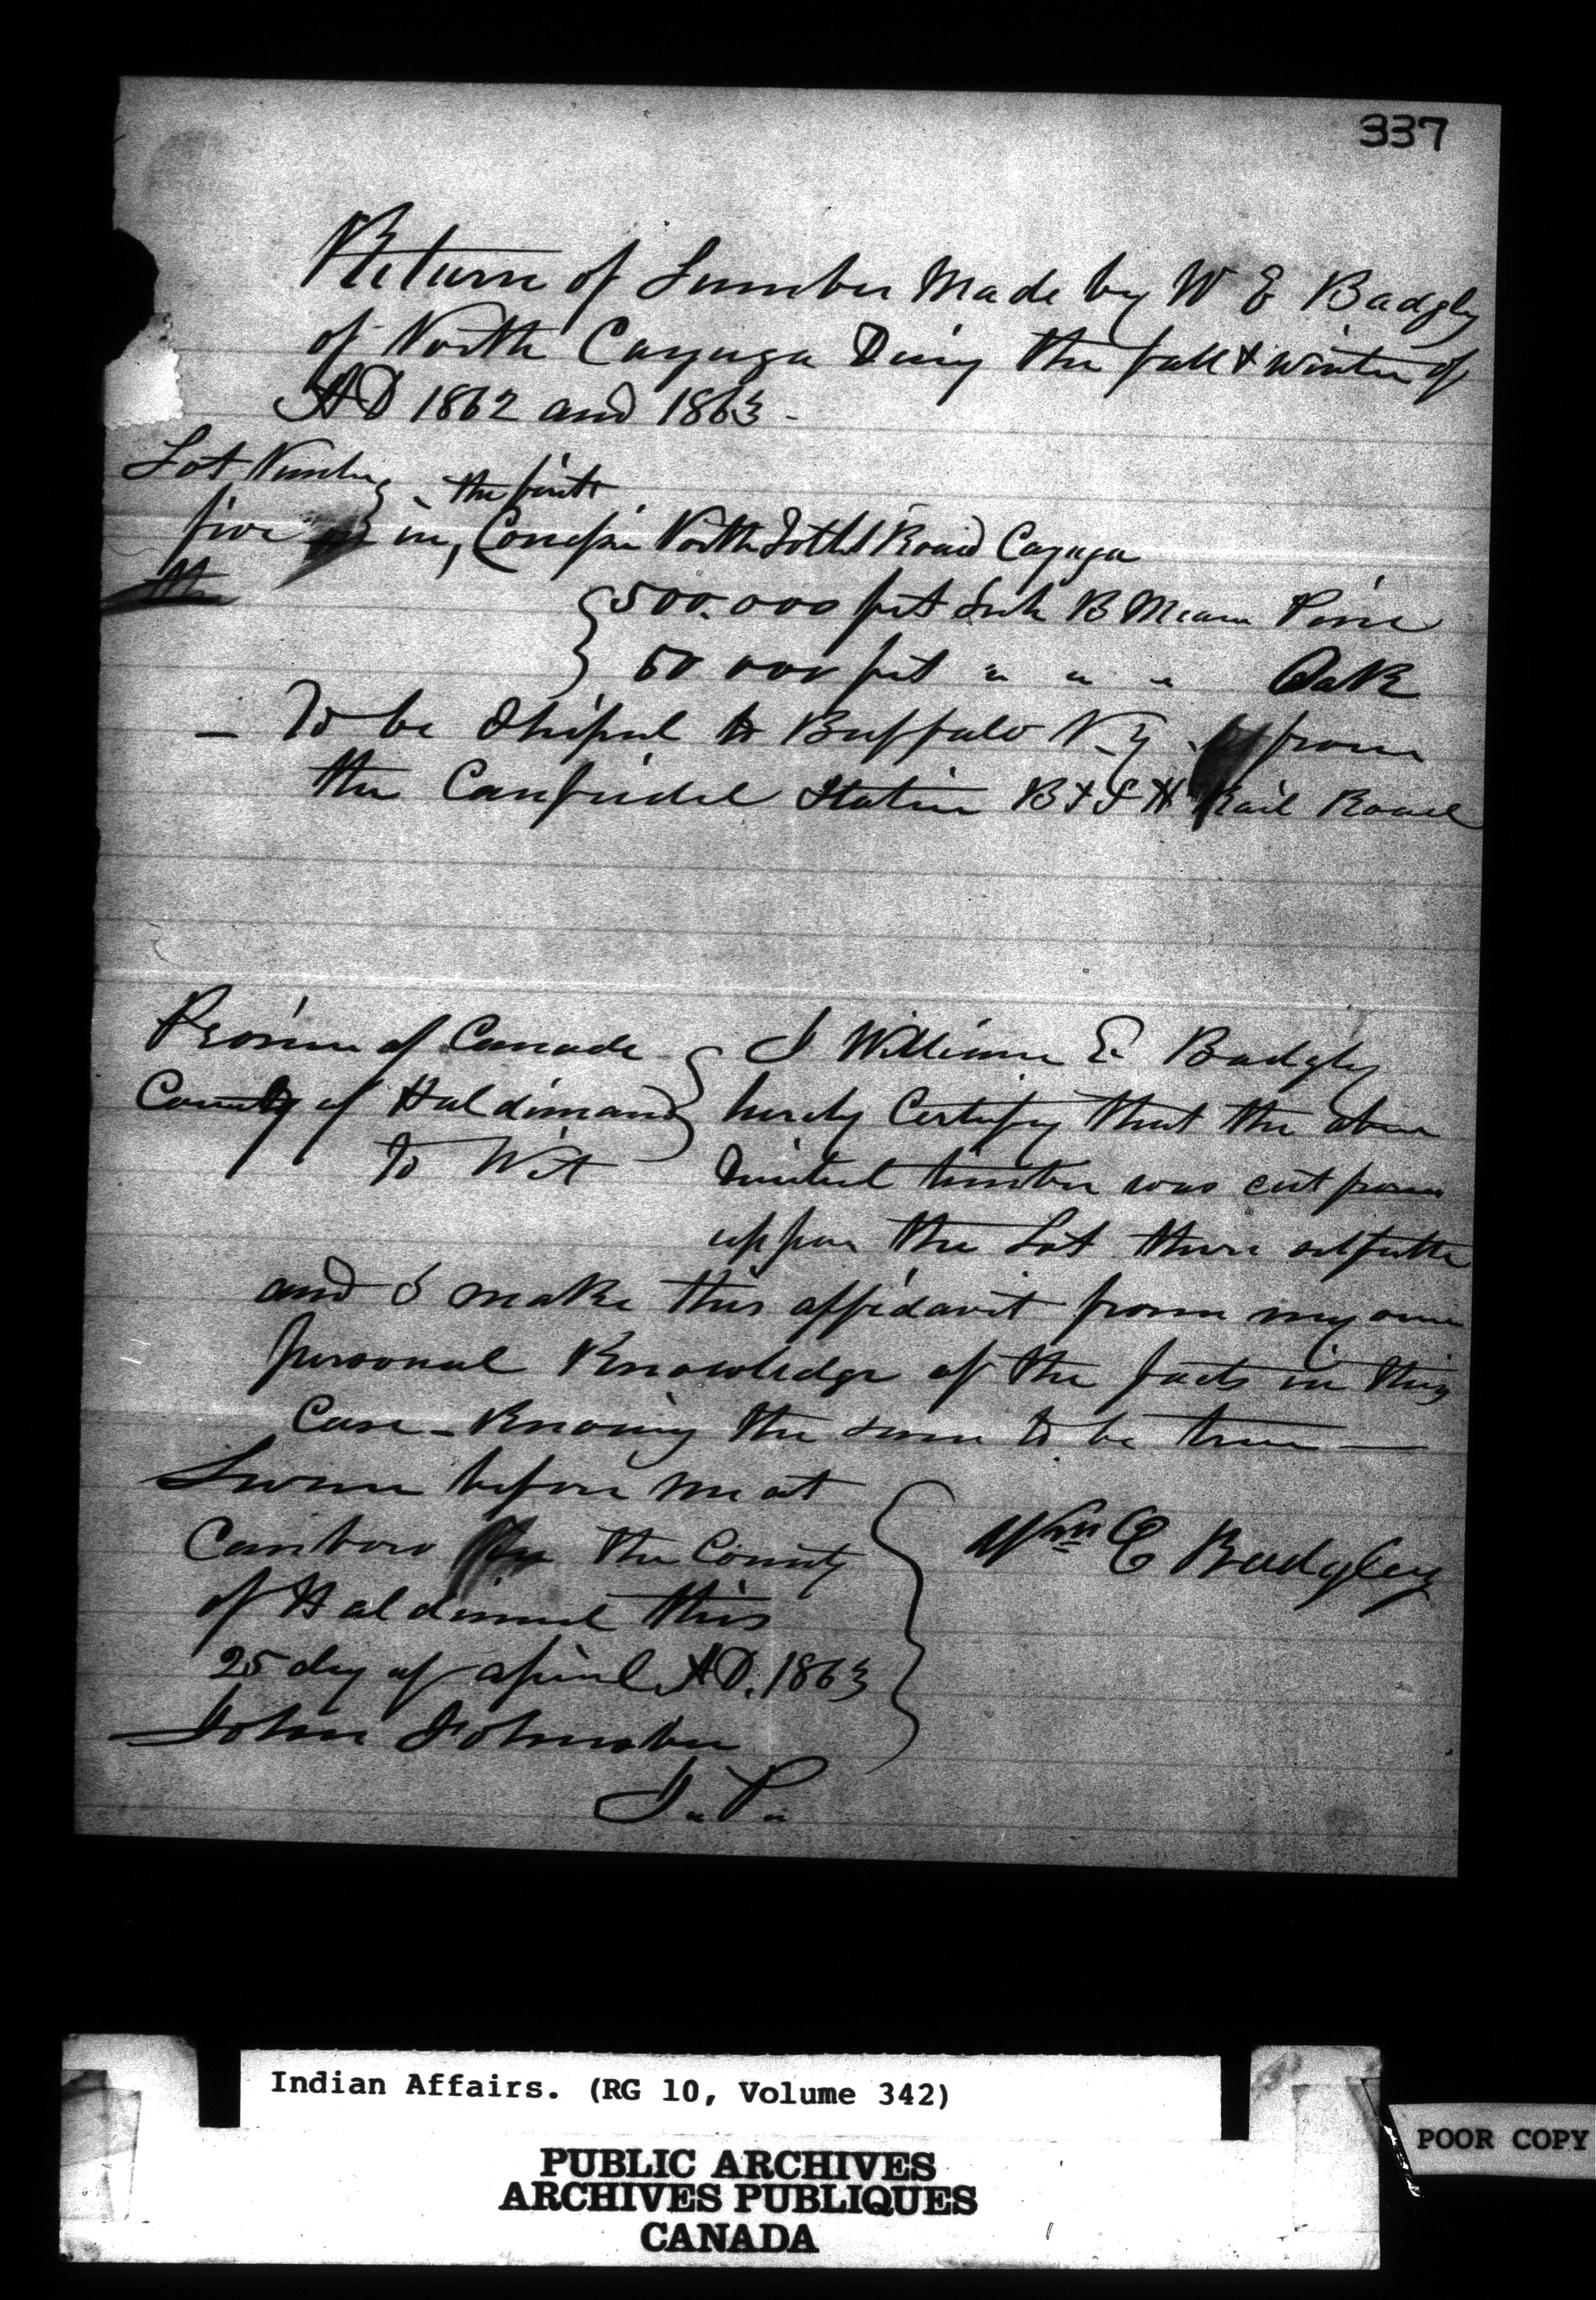 337
Return of Lumber Made by W E Badgly
of North Cayuga During the fall & winter of
AD 1862 and 1863 -
Lot Number
the first
five in, Concession North Talbot Road Cayuga
the
500.000 feet Inch B Mean Pine
50 000 feet " " " Oak
- To be Shiped to Buffalo N.Y. from
the Canfield Station B & L H Rail Road
Province of Canada I William E Badgly
County of Haldimand hereby Certify that the above
To Wit timber was cut from
uppon the Lot there
and I make this affidavit from my own
personal Knowledge of the facts in this
Case - Knowing the same to be true —
Sworn before me at
Canboro the County Wm E Badgley
of Haldimand this
25 day of april AD. 1863
John Johnston
J. P.
Indian Affairs. (RG 10, Volume 342)
PUBLIC ARCHIVES
ARCHIVES PUBLIQUES
CANADA
POOR COPY